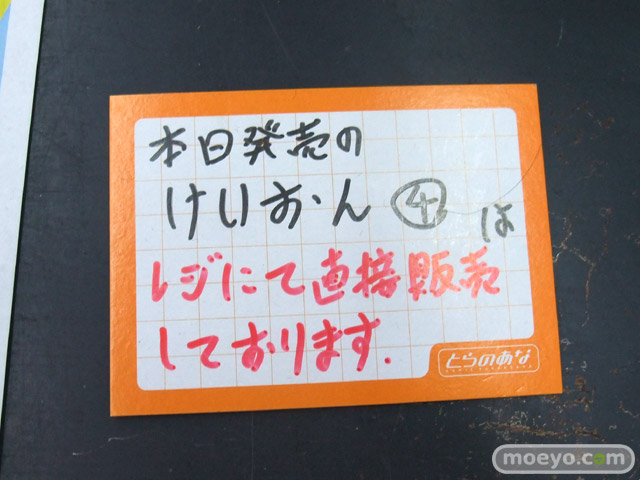 本日発売の
けいおん④は
レジにて直接販売
しております.
とらのあな
moeyo.com